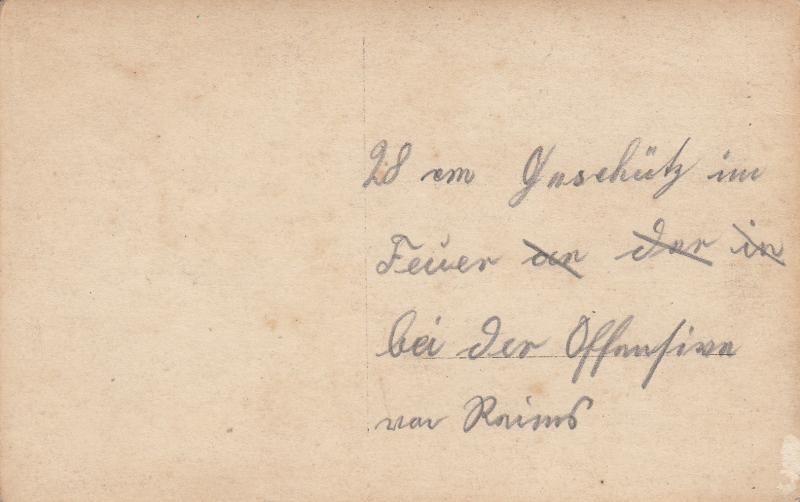 28 cm Geschütz im
Feuer an der in
bei der Offensive
vor Reims